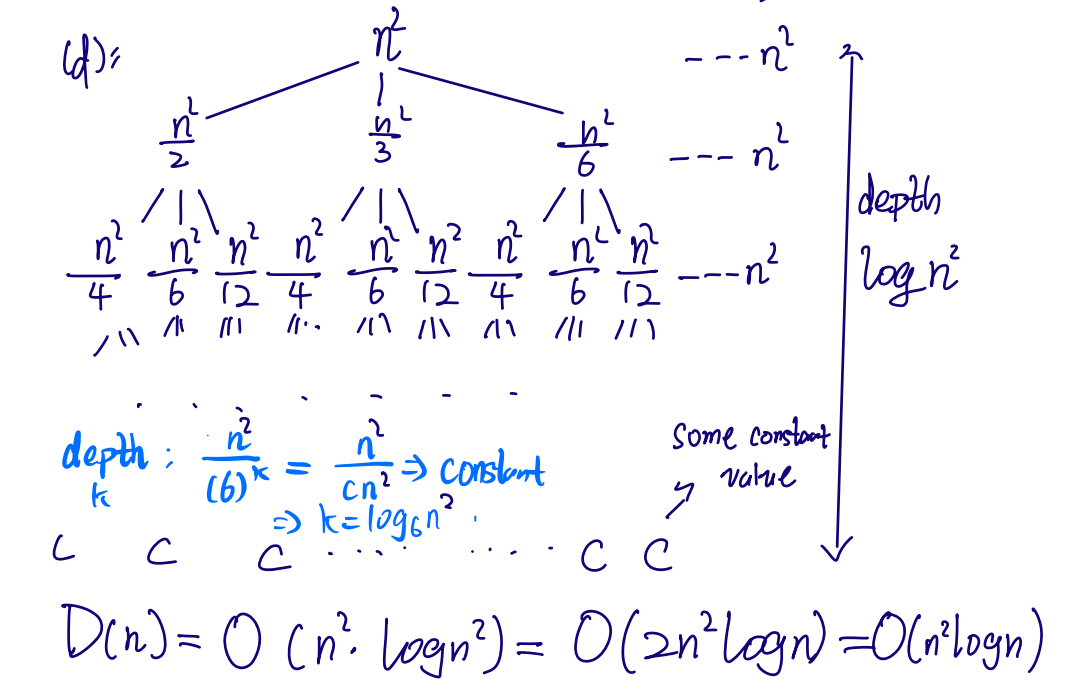 (d):
n² --- n²
n²/2 n²/3 n²/6 --- n²
n²/4 n²/6 n²/12 n²/4 n²/6 n²/12 n²/4 n²/6 n²/12 --- n²
depth
log n²
depth k : n²/(6)^k = n²/cn² ⇒ constant
⇒ k = log₆n².
some constant
value
C C C ···· ···· C C
D(n) = O(n². logn²) = O(2n²logn) = O(n²logn)